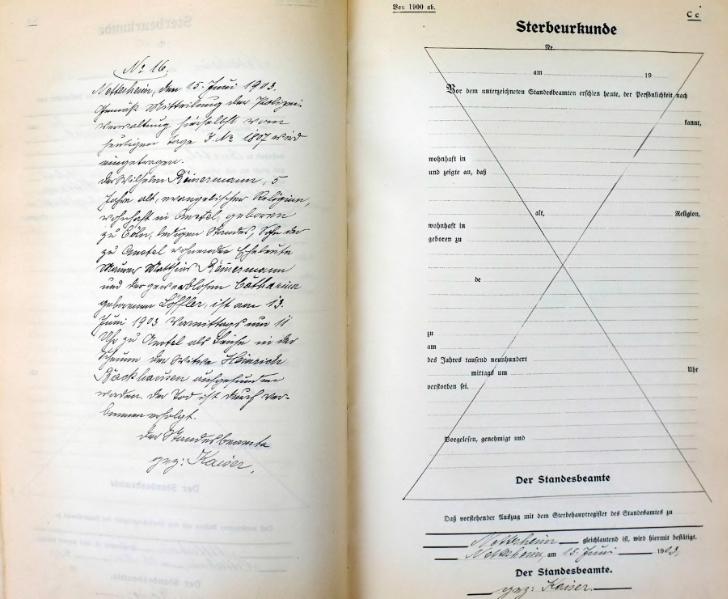 No 16.
Nettersheim, den 15. Juni 1903.
Gemäß Mitteilung der Polizei
verwaltung hierselbst vom
heutigen Tage J. No 1887 wird
eingetragen.
der Wilhelm Reinermann, 5
Jahre alt, evangelischer Religion,
wohnhaft in geboren
zu Cöln, ledigen Standes, Sohn der
zu wohnenden Eheleute
Maurer Matthias Reinermann
und der gewerblosen Catharina
geborenen Löffler, ist am 13.
Juni 1903 Vormittags um 11
Uhr zu als Leiche in der
Scheune der Witwe Heinrich
Backhausen aufgefunden
worden. Der Tod ist durch Ver-
brennen erfolgt.
Der Standesbeamte
gez: Kaiser.
Vor 1900 ab.
C c
Sterbeurkunde
Nr.
am 19
Vor dem unterzeichneten Standesbeamten erschien heute, der Persönlichkeit nach
kannt,
wohnhaft in
und zeigte an, daß
alt, Religion,
wohnhaft in
geboren zu
de
zu
am
des Jahres tausend neunhundert
mittags um Uhr
verstorben sei.
Vorgelesen, genehmigt und
Der Standesbeamte
Daß vorstehender Auszug mit dem Sterbehauptregister des Standesamtes zu
Nettersheim gleichlautend ist, wird hiermit bestätigt.
Nettersheim, am 15. Juni 1903.
Der Standesbeamte.
gez: Kaiser.